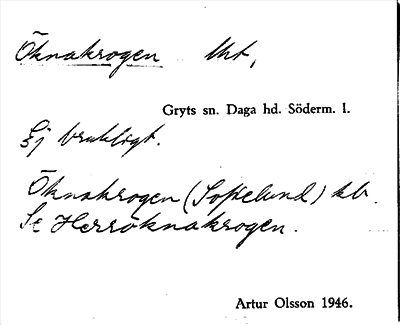 Öknakrogen Urt,
Gryts sn. Daga hd. Söderm. l.
Ej brukligt.
Öknakrogen (Sofielund) kbr.
Se Herröknakrogen.
Artur Olsson 1946.